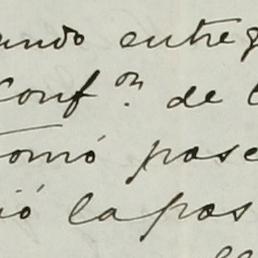 ando entreg
Conf.ᵒⁿ de l
Tomó pose
ió la pos